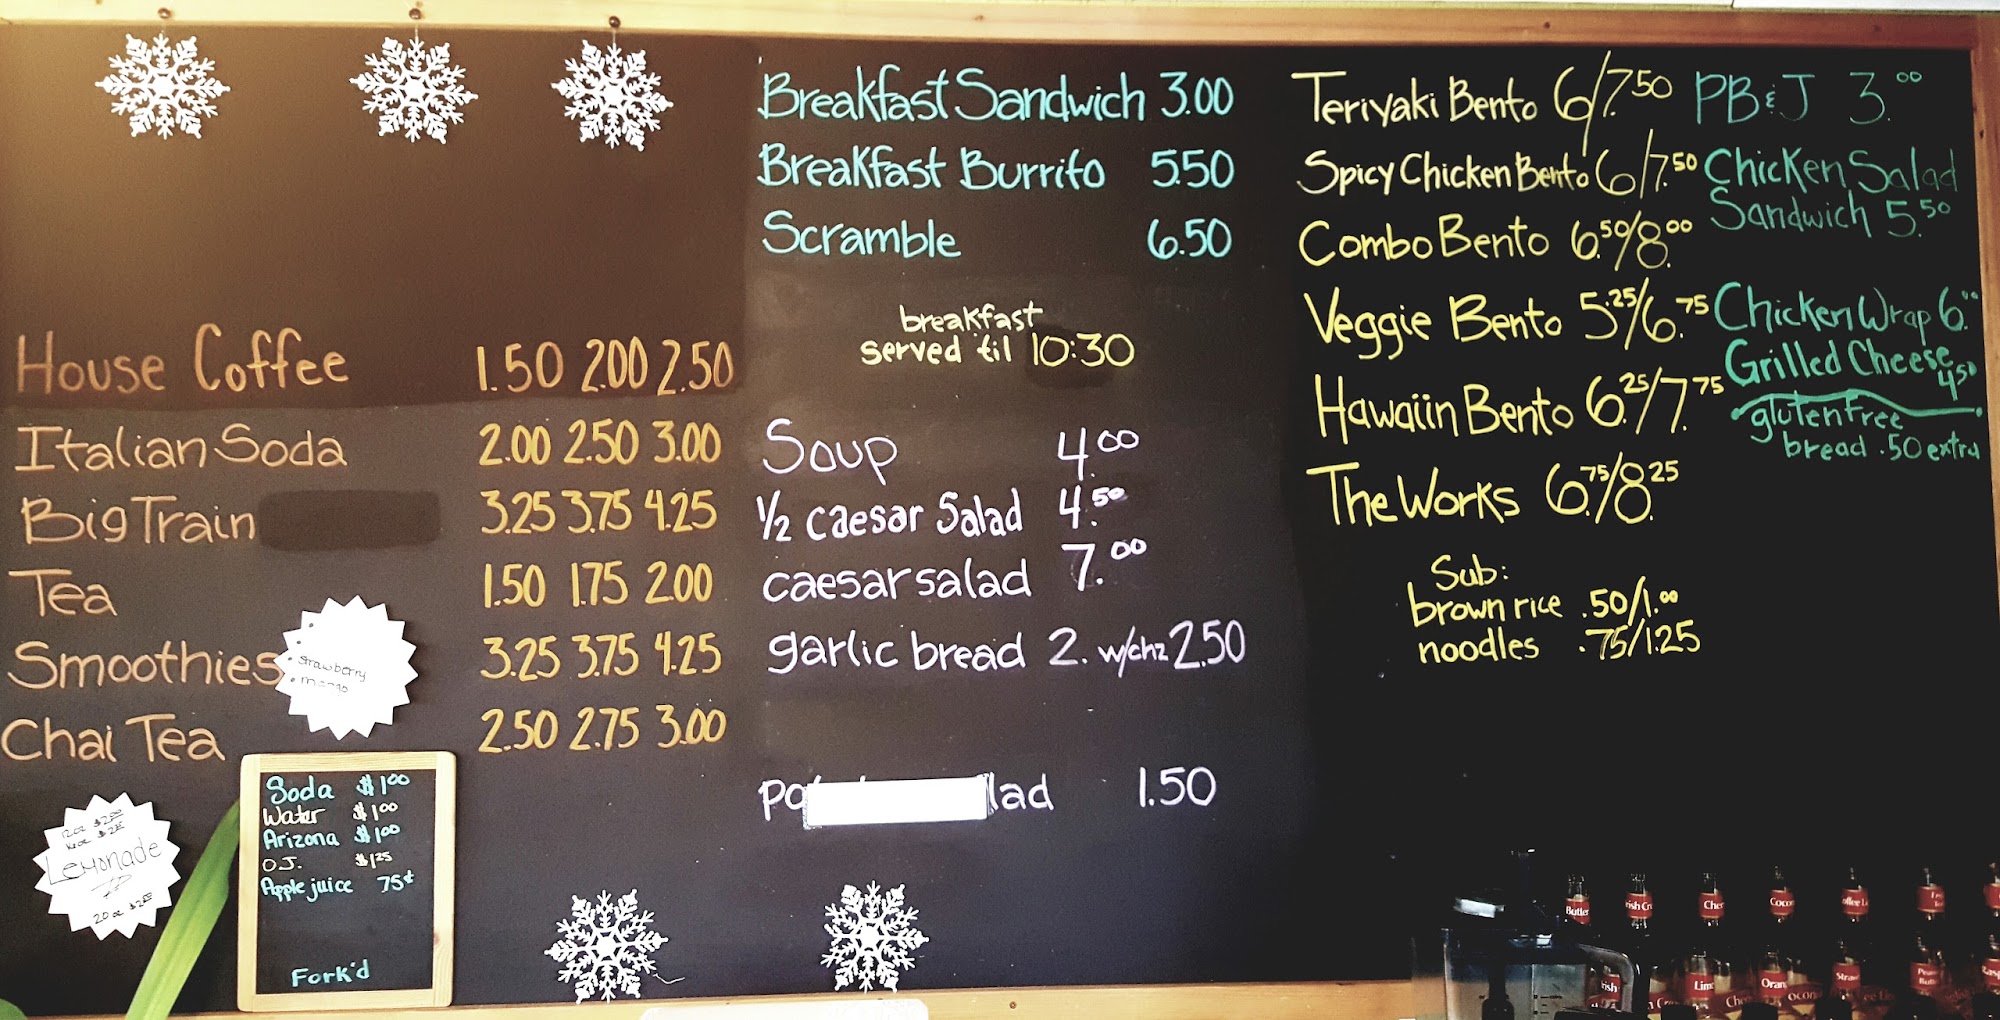 House Coffee 1.50 2.00 2.50
Italian Soda 2.00 2.50 3.00
Big Train 3.25 3.75 4.25
Tea 1.50 1.75 2.00
Smoothies 3.25 3.75 4.25
• strawberry
• mango
Chai Tea 2.50 2.75 3.00
Lemonade
Soda $1.00
Water $1.00
Arizona $1.00
O.J. $1.25
Apple juice 75¢
Fork'd
Breakfast Sandwich 3.00
Breakfast Burrito 5.50
Scramble 6.50
breakfast
served til 10:30
Soup 4.00
1/2 caesar Salad 4.50
caesar salad 7.00
garlic bread 2. w/chz 2.50
1.50
Teriyaki Bento 6/7.50
Spicy Chicken Bento 6/7.50
Combo Bento 6.50/8.00
Veggie Bento 5.25/6.75
Hawaiin Bento 6.25/7.75
The Works 6.75/8.25
Sub:
brown rice .50/1.00
noodles .75/1.25
PB&J 3.00
Chicken Salad
Sandwich 5.50
Chicken Wrap 6.00
Grilled Cheese
4.50
gluten free
bread .50 extra